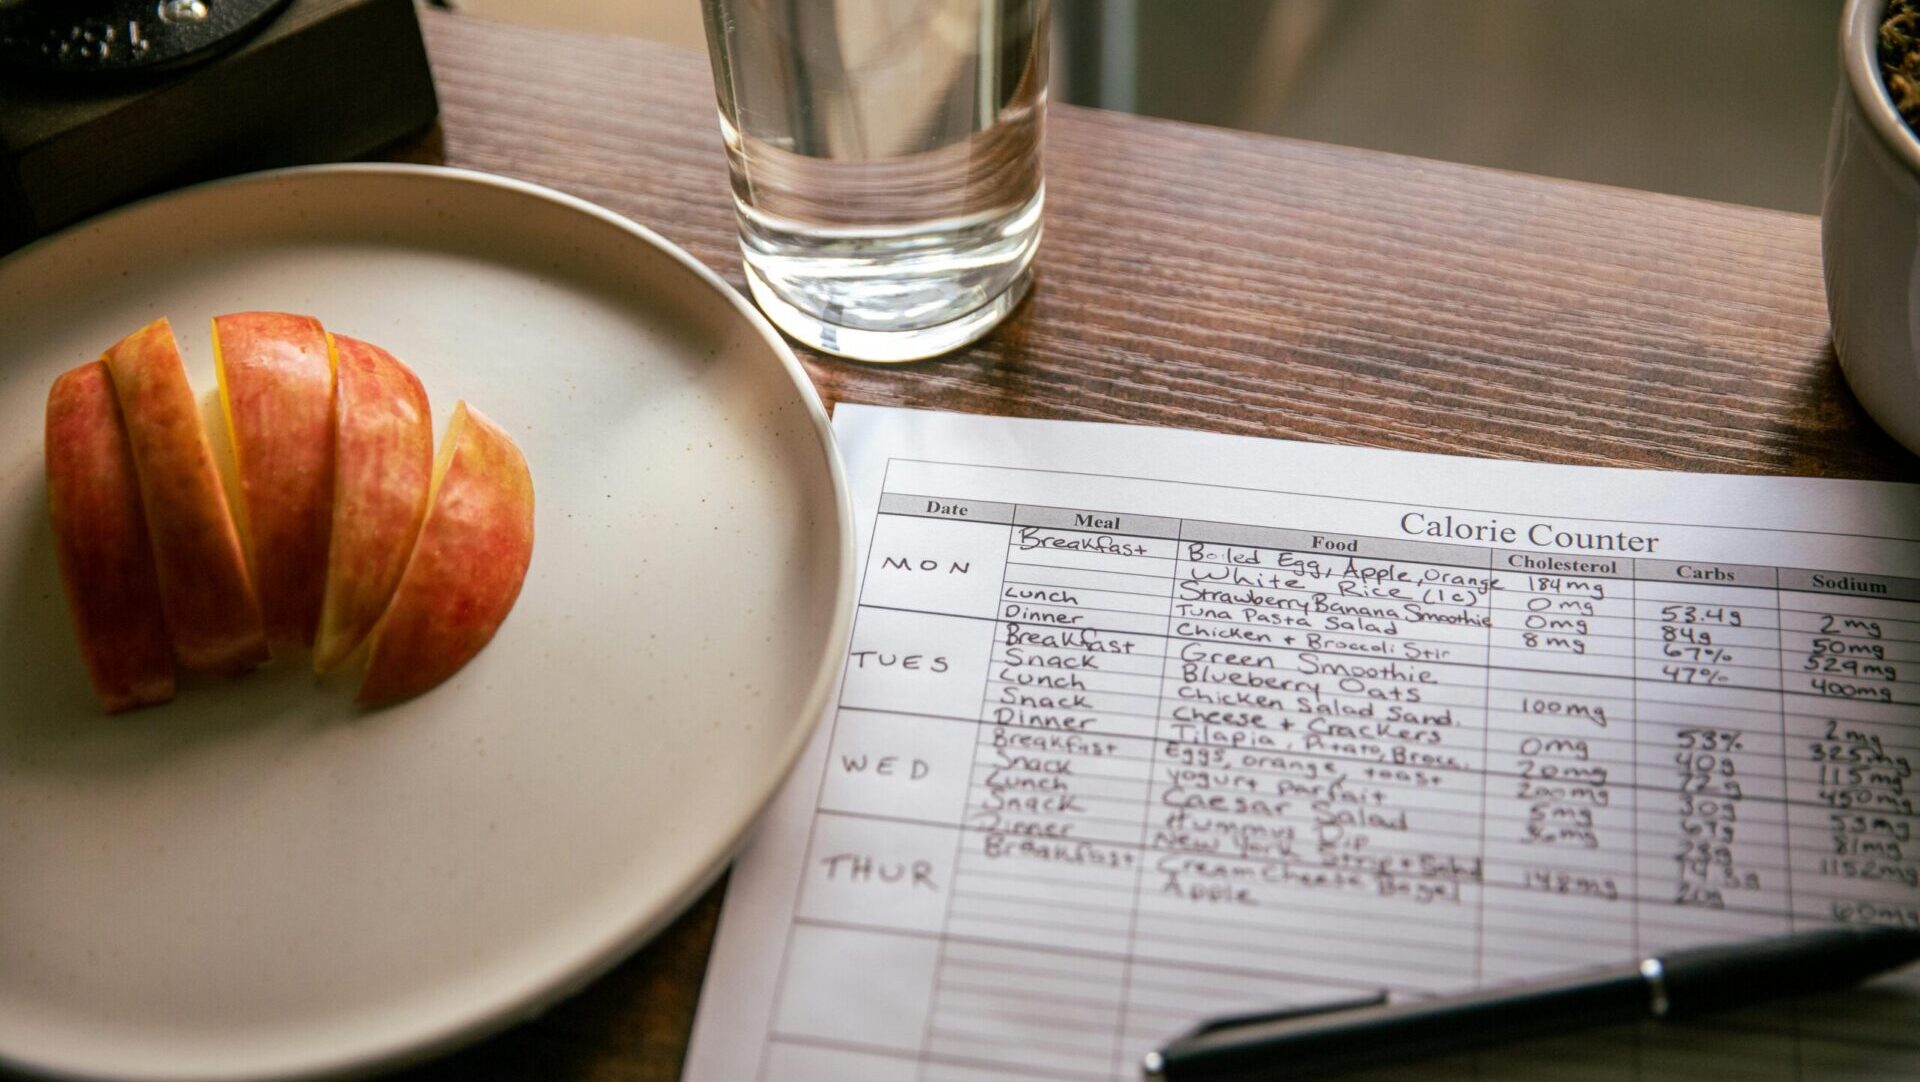 Calorie Counter
Date Meal Food Cholesterol Carbs Sodium
MON
Breakfast Boiled Egg, Apple, Orange 184mg 53.4g 2mg
White Rice (1c) 0mg 84g 50mg
Lunch Strawberry Banana Smoothie 0mg 67% 529mg
Dinner Tuna Pasta Salad 8mg 47% 400mg
TUES
Breakfast Chicken + Broccoli Stir
Snack Green Smoothie
Lunch Blueberry Oats 100mg 2mg
Snack Chicken Salad Sand. 53% 325mg
Dinner Cheese + Crackers 0mg 40g 115mg
WED
Breakfast Tilapia, Potato, Brocc. 20mg 72g 450mg
Snack Eggs, orange, toast 200mg 30g 53mg
Lunch yogurt parfait 5mg 67g 81mg
Snack Caesar Salad 36mg 1152mg
Dinner Hummus Dip
THUR
Breakfast New York Strip + Salad 148mg 20g 60mg
Cream Cheese Bagel
Apple